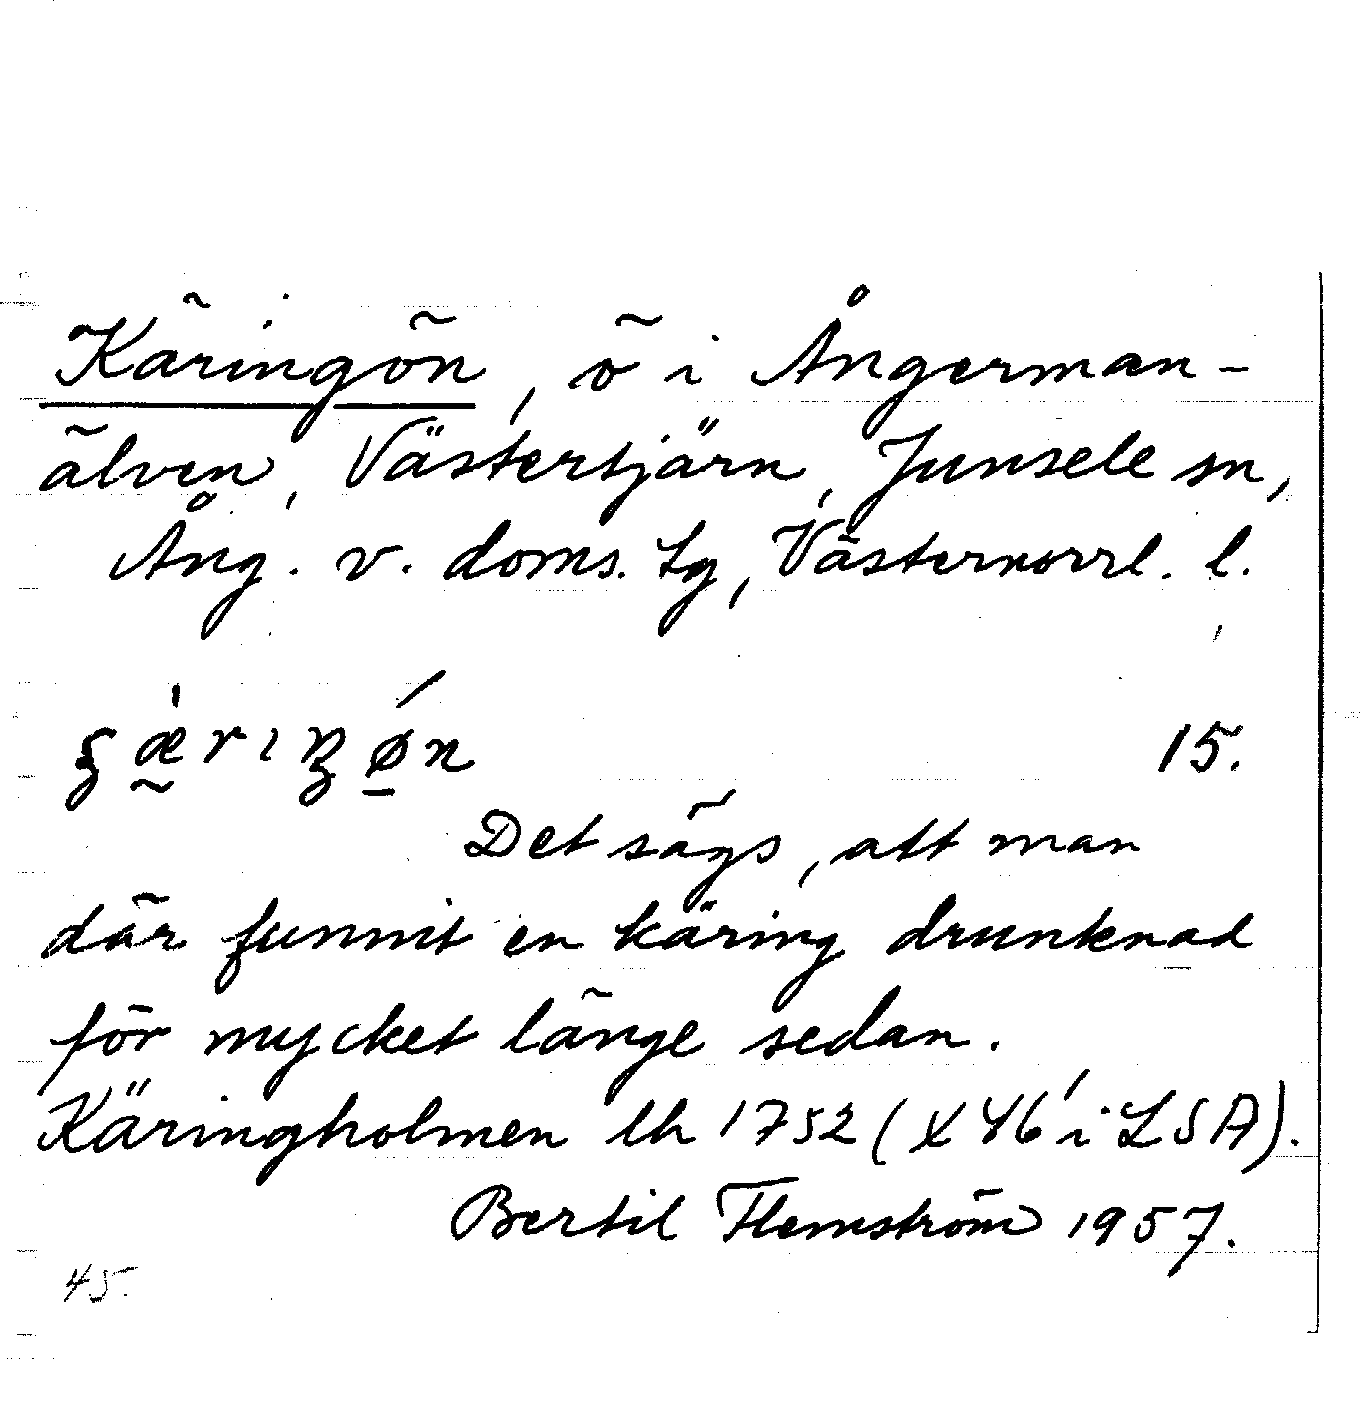 Käringön, ö i Ångerman-
älven, Västertjärn, Junsele sn,
Ång. v. doms. tg, Västernorrl. l.
15.
Det sägs, att man
där funnit en käring drunknad
för mycket länge sedan.
Käringholmen lh 1752 (X 46 i LSA).
Bertil Flemström 1957.
45.